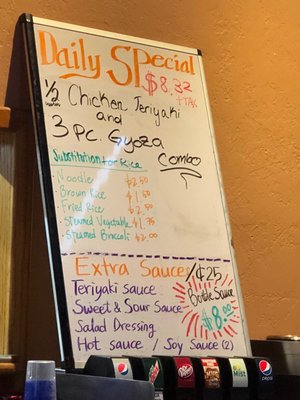 Daily Special
$8.32
+TAX
1/2 Chicken Teriyaki
and
3 PC. Gyoza
Combo
Substitution for Rice
· Noodle $2.50
· Brown Rice $1.50
· Fried Rice $2.50
· Steamed Vegetable $1.75
· Steamed Broccoli $2.00
Extra Sauces / ¢25
Teriyaki sauce
Sweet & Sour Sauce
Salad Dressing
Hot sauce / Soy Sauce (2)
Bottle Sauce
$8.00
pepsi
Mist
pepsi